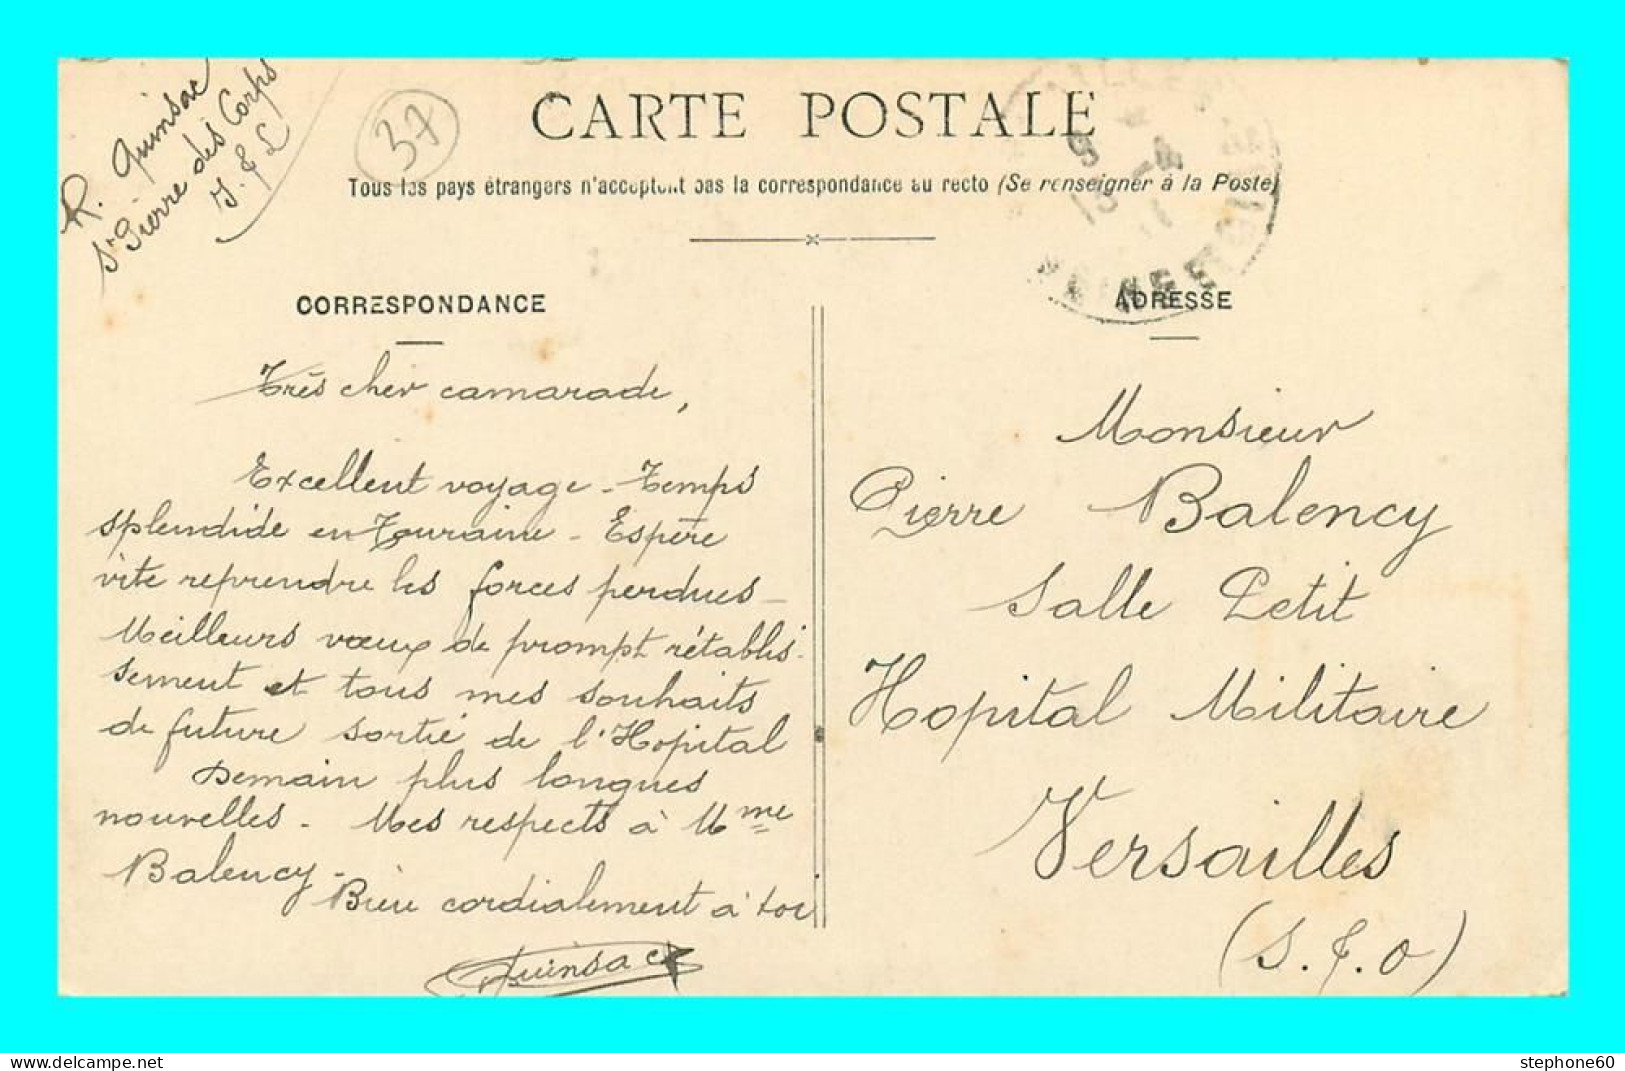 R. Quinsac
St Pierre des Corps
I. & L
37
CARTE POSTALE
Tous les pays étrangers n'acceptent pas la correspondance au recto (Se renseigner à la Poste)
CORRESPONDANCE
Très cher camarade,
Excellent voyage - Temps
splendide en Touraine - Espère
vite reprendre les forces perdues -
Meilleurs vœux de prompt rétablis-
sement et tous mes souhaits
de future sortie de l'Hopital
Demain plus longues
nouvelles - Mes respects à Mme
Balency -
Bien cordialement à toi
Quinsac
ADRESSE
Monsieur
Pierre Balency
Salle Petit
Hopital Militaire
Versailles
(S. & O)
https://www.delcampe.net
stephone60